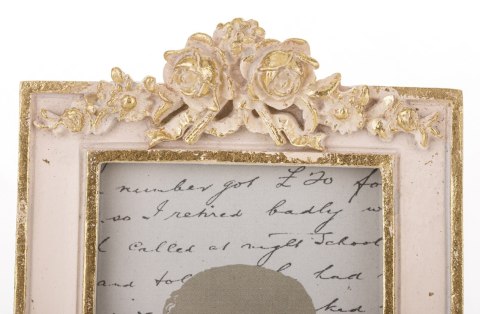 number got £70 fo
so I retired badly w
I called at night School
and tol h had
ked